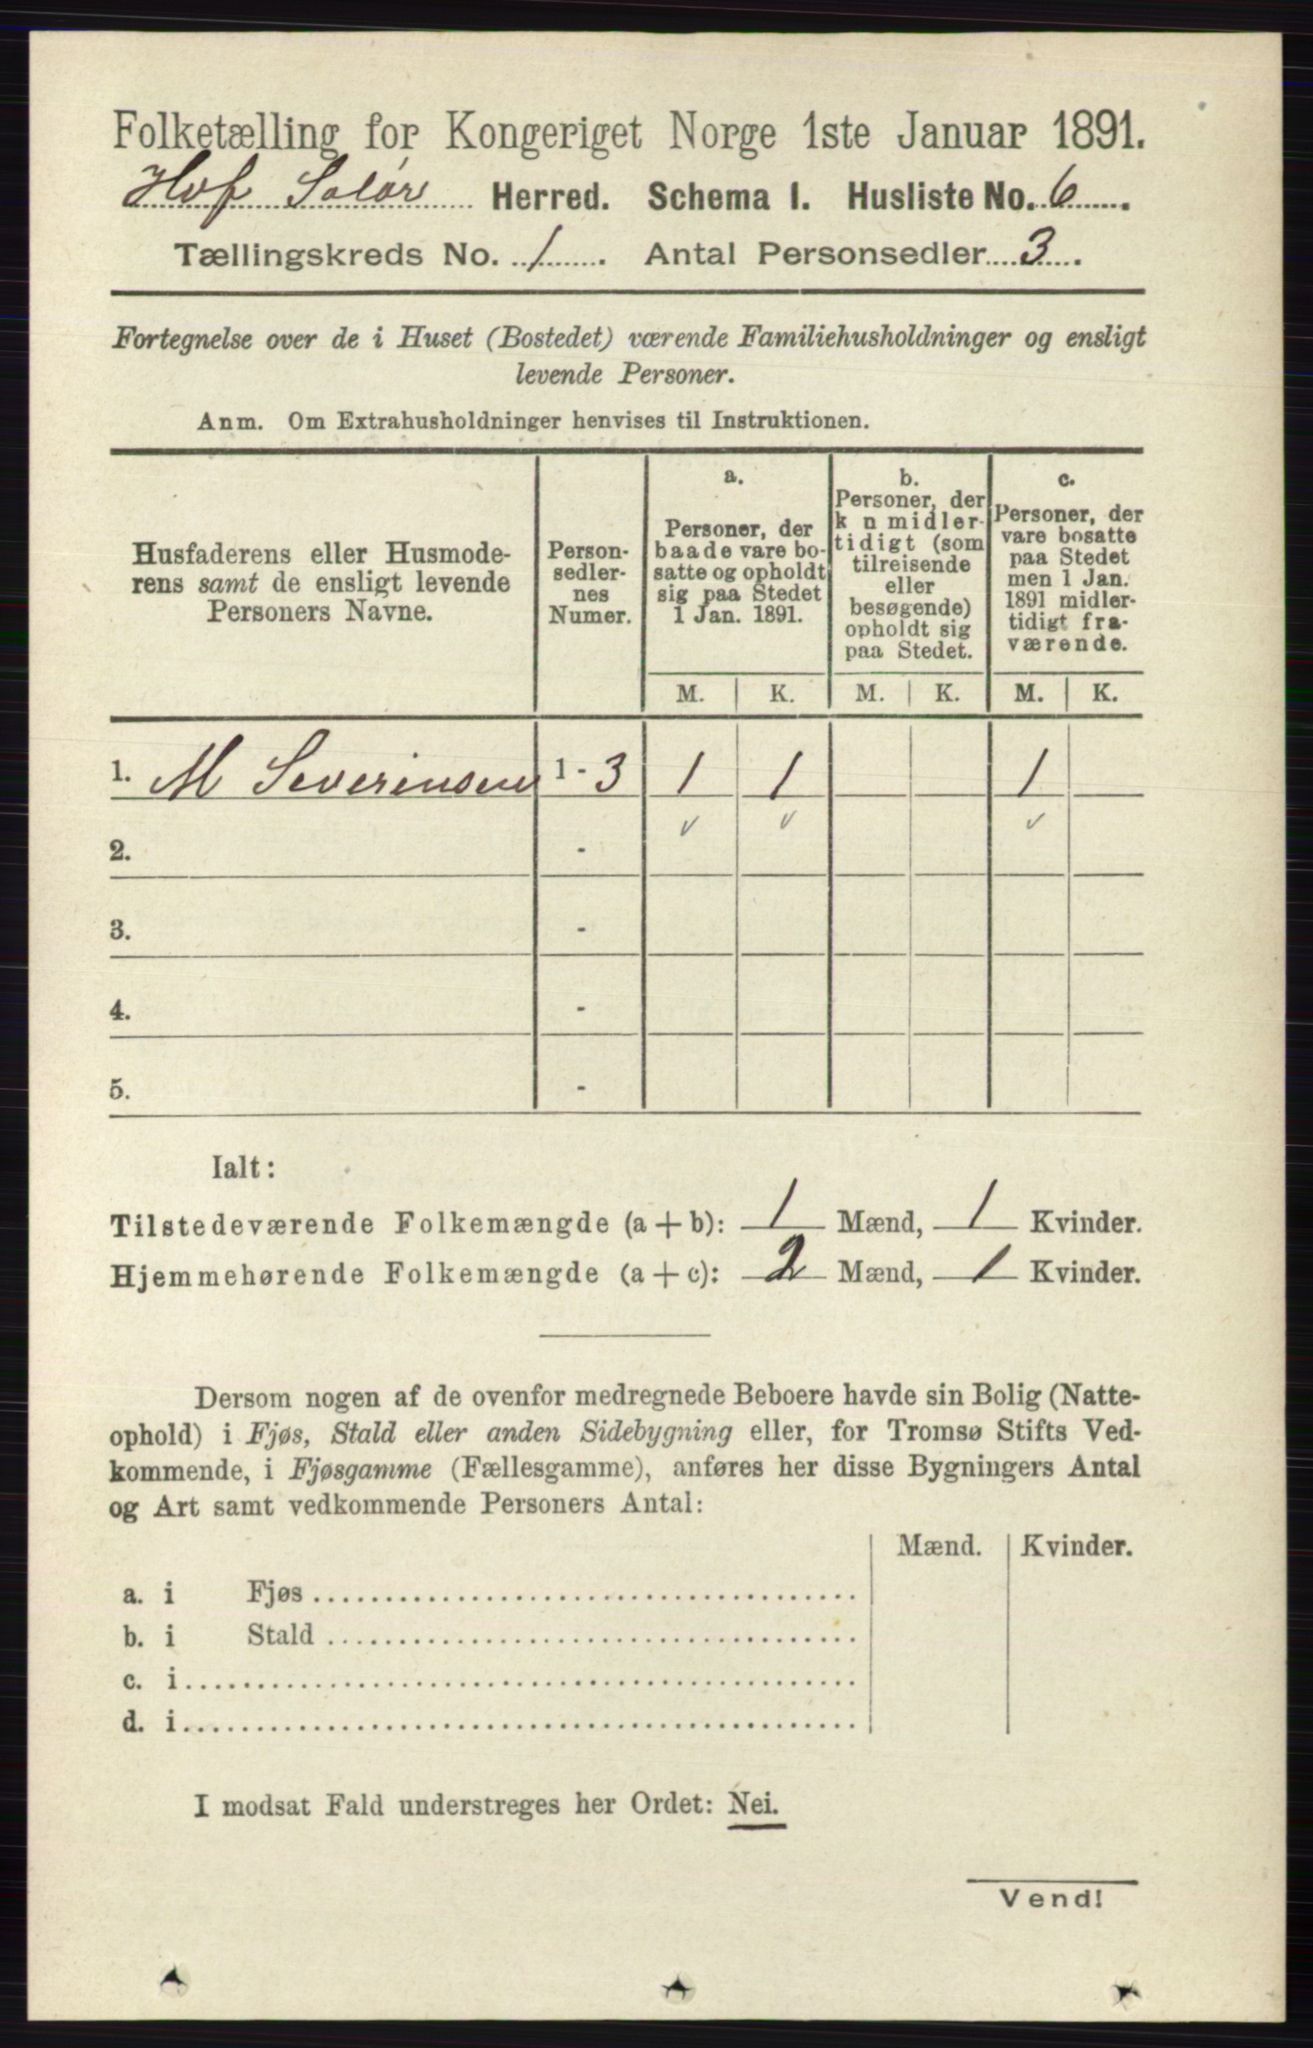 Folketælling for Kongeriget Norge 1ste Januar 1891.
Hof Solør Herred. Schema I. Husliste No. 6
Tællingskreds No. 1. Antal Personsedler 3.
Fortegnelse over de i Huset (Bostedet) værende Familiehusholdninger og ensligt
levende Personer.
Anm. Om Extrahusholdninger henvises til Instruktionen.
Husfaderens eller Husmode-
rens samt de ensligt levende
Personers Navne.
Person-
sedler-
nes
Numer.
a.
Personer, der
baade vare bo-
satte og opholdt
sig paa Stedet
1 Jan. 1891.
b.
Personer, der
k n midler-
tidigt (som
tilreisende
eller
besøgende)
opholdt sig
paa Stedet.
c.
Personer, der
vare bosatte
paa Stedet
men 1 Jan.
1891 midler-
tidigt fra-
værende.
M. K. M. K. M. K.
1. M Severinsen 1 - 3 1 1 1
2. -
3. -
4. -
5. -
Ialt:
Tilstedeværende Folkemængde (a + b): 1 Mænd, 1 Kvinder.
Hjemmehørende Folkemængde (a + c): 2 Mænd, 1 Kvinder.
Dersom nogen af de ovenfor medregnede Beboere havde sin Bolig (Natte-
ophold) i Fjøs, Stald eller anden Sidebygning eller, for Tromsø Stifts Ved-
kommende, i Fjøsgamme (Fællesgamme), anføres her disse Bygningers Antal
og Art samt vedkommende Personers Antal:
Mænd. Kvinder.
a. i Fjøs
b. i Stald
c. i
d. i
I modsat Fald understreges her Ordet: Nei.
Vend!